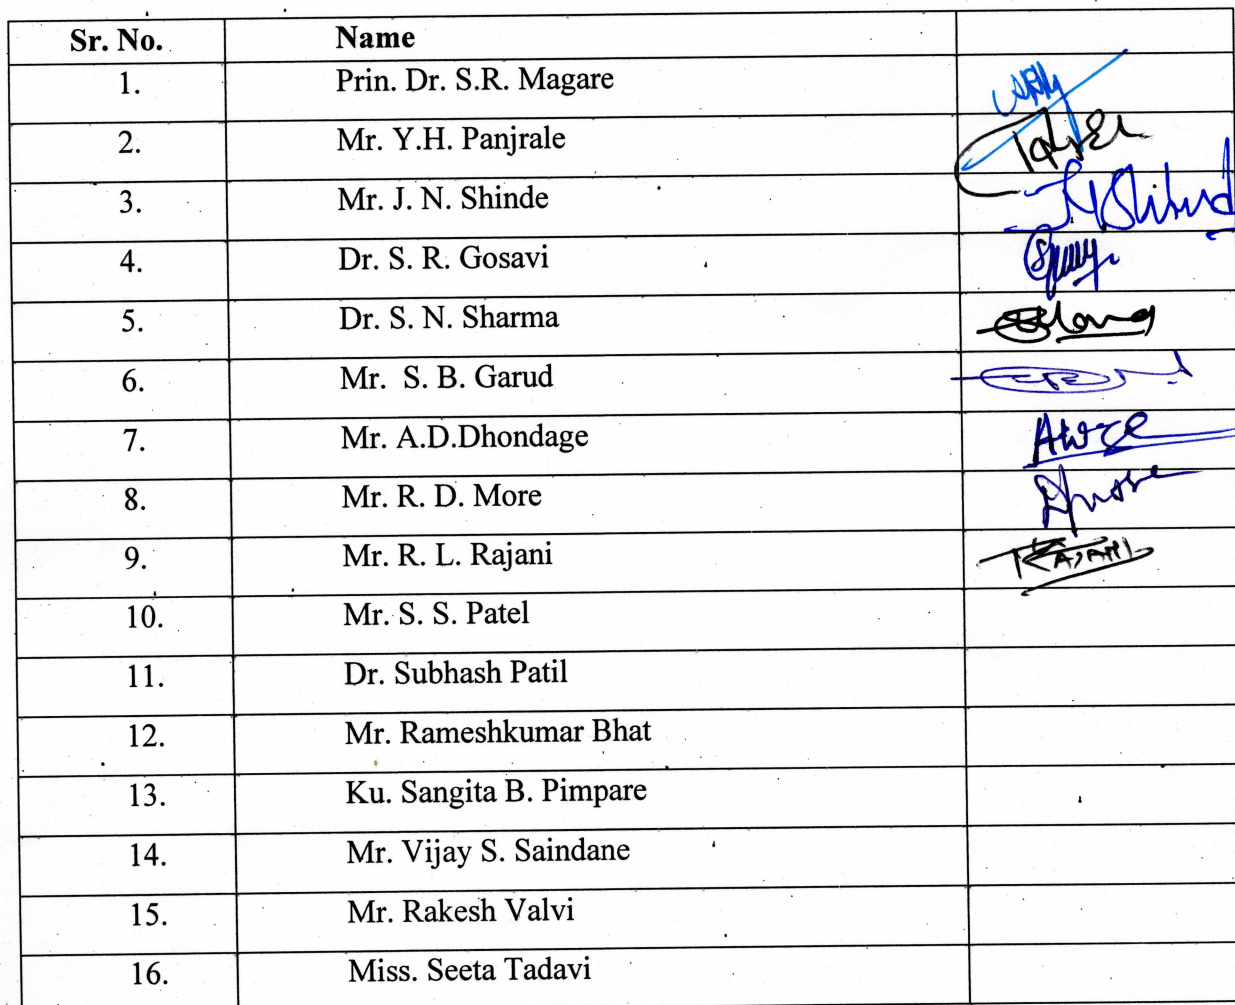 Sr. No. Name
1. Prin. Dr. S.R. Magare
2. Mr. Y.H. Panjrale
3. Mr. J. N. Shinde
4. Dr. S. R. Gosavi
5. Dr. S. N. Sharma
6. Mr. S. B. Garud
7. Mr. A.D.Dhondage
8. Mr. R. D. More
9. Mr. R. L. Rajani
10. Mr. S. S. Patel
11. Dr. Subhash Patil
12. Mr. Rameshkumar Bhat
13. Ku. Sangita B. Pimpare
14. Mr. Vijay S. Saindane
15. Mr. Rakesh Valvi
16. Miss. Seeta Tadavi